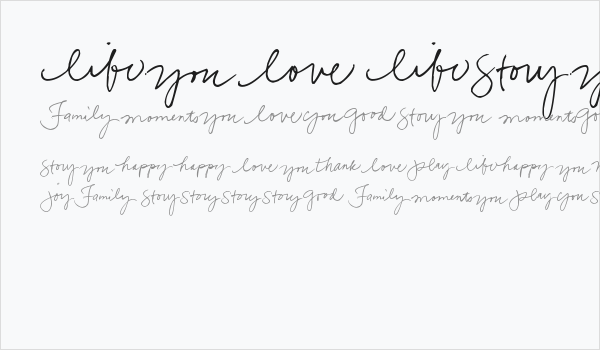 life you love life story
Family moments you love you good story you moments
story you happy happy love you thank love play life happy you
joy Family story story story story good Family moments you play you